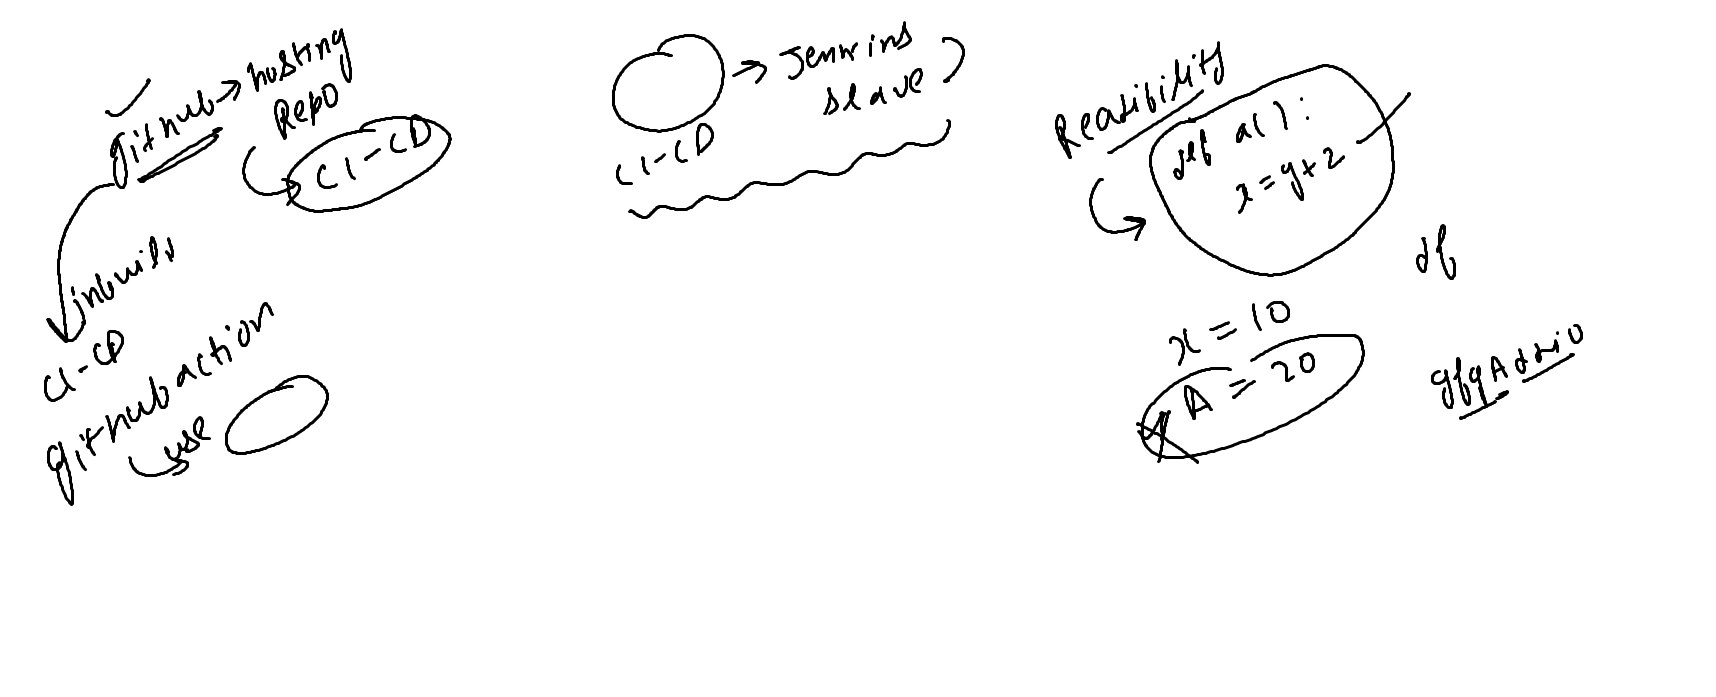 github → hosting
Repo
CI-CD
inbuild
CI-CD
github action
use
→ Jenkins
slave
CI-CD
Readibility
def a():
x=y+2
df
x = 10
A = 20